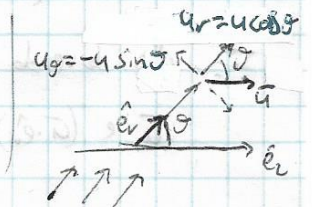 u_r = u cosϑ
u_ϑ = -u sinϑ
ϑ
ū
ê_r
ϑ
ê_z